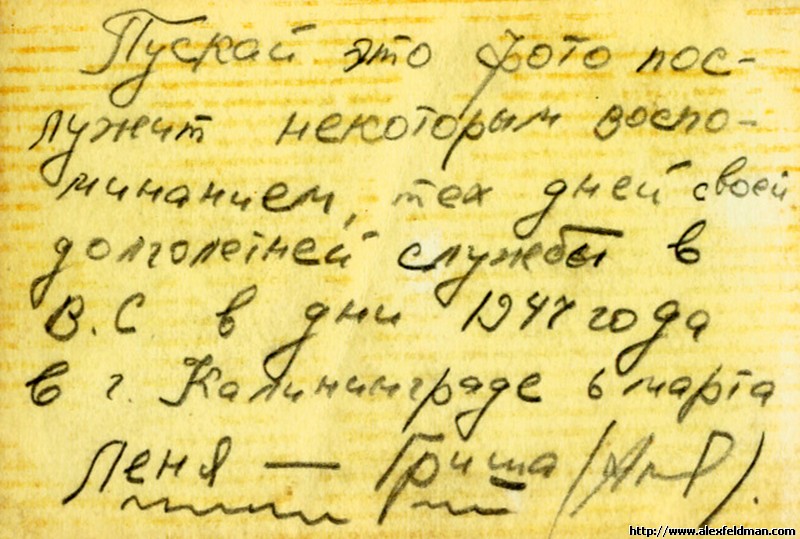 Пускай это фото пос-
лужит некоторым воспо-
минанием, тех дней своей
долголетней службы в
В.С. в дни 1947 года
в г. Калининграде 6 марта
Леня — Гриша
http://www.alexfeldman.com